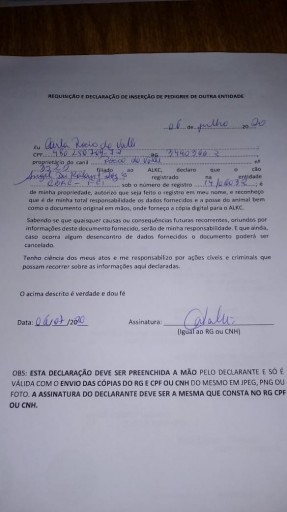 REQUISIÇÃO E DECLARAÇÃO DE INSERÇÃO DE PEDIGREE DE OUTRA ENTIDADE
06 de julho 20
Eu
CPF RG
proprietário do canil nº
filiado ao ALKC, declaro que o cão
registrado na entidade
sob o número de registro é
de minha propriedade, autorizo que seja feito o registro em meu nome, e reconheço
que é de minha total responsabilidade os dados fornecidos e a posse do animal bem
como o documento original em mãos, onde forneço a cópia digital para o ALKC.
Sabendo-se que quaisquer causas ou consequências futuras recorrentes, oriundos por
informações deste documento fornecido, serão de minha responsabilidade. E que ainda,
caso ocorra algum desencontro de dados fornecidos o documento poderá ser
cancelado.
Tenho ciência dos meus atos e me responsabilizo por ações cíveis e criminais que
possam recorrer sobre as informações aqui declaradas.
O acima descrito é verdade e dou fé
Data: /2020 Assinatura:
(Igual ao RG ou CNH)
OBS: ESTA DECLARAÇÃO DEVE SER PREENCHIDA A MÃO PELO DECLARANTE E SÓ É
VÁLIDA COM O ENVIO DAS CÓPIAS DO RG E CPF OU CNH DO MESMO EM JPEG, PNG OU
FOTO. A ASSINATURA DO DECLARANTE DEVE SER A MESMA QUE CONSTA NO RG CPF
OU CNH.